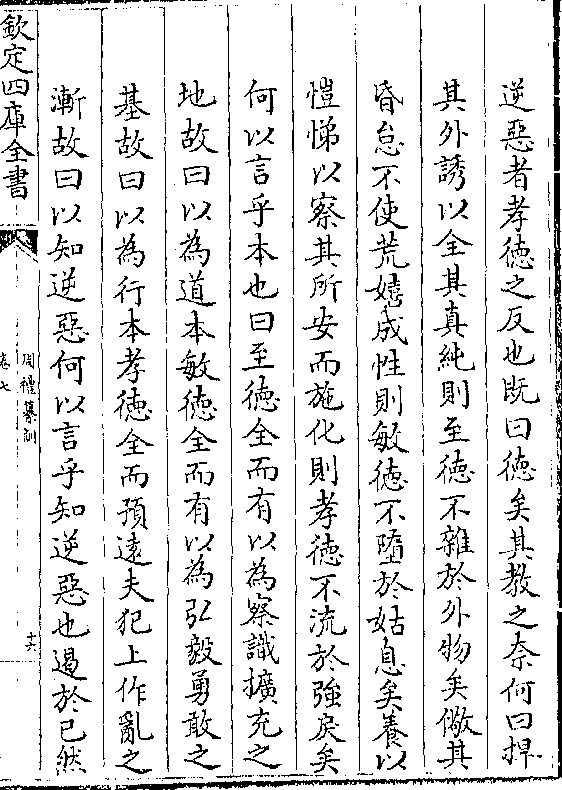 逆惡者孝德之反也既曰德矣其教之奈何曰捍
其外誘以全其真純則至德不雜於外物矣儆其
昏怠不使荒嬉成性則敏德不墮於姑息矣養以
愷悌以察其所安而施化則孝德不流於強戾矣
何以言乎本也曰至德全而有以為察識擴充之
地故曰以為道本敏德全而有以為弘毅勇敢之
基故曰以為行本孝德全而預遠夫犯上作亂之
漸故曰以知逆惡何以言乎知逆惡也遏於已然
欽定四庫全書
周禮纂訓
卷七
十六